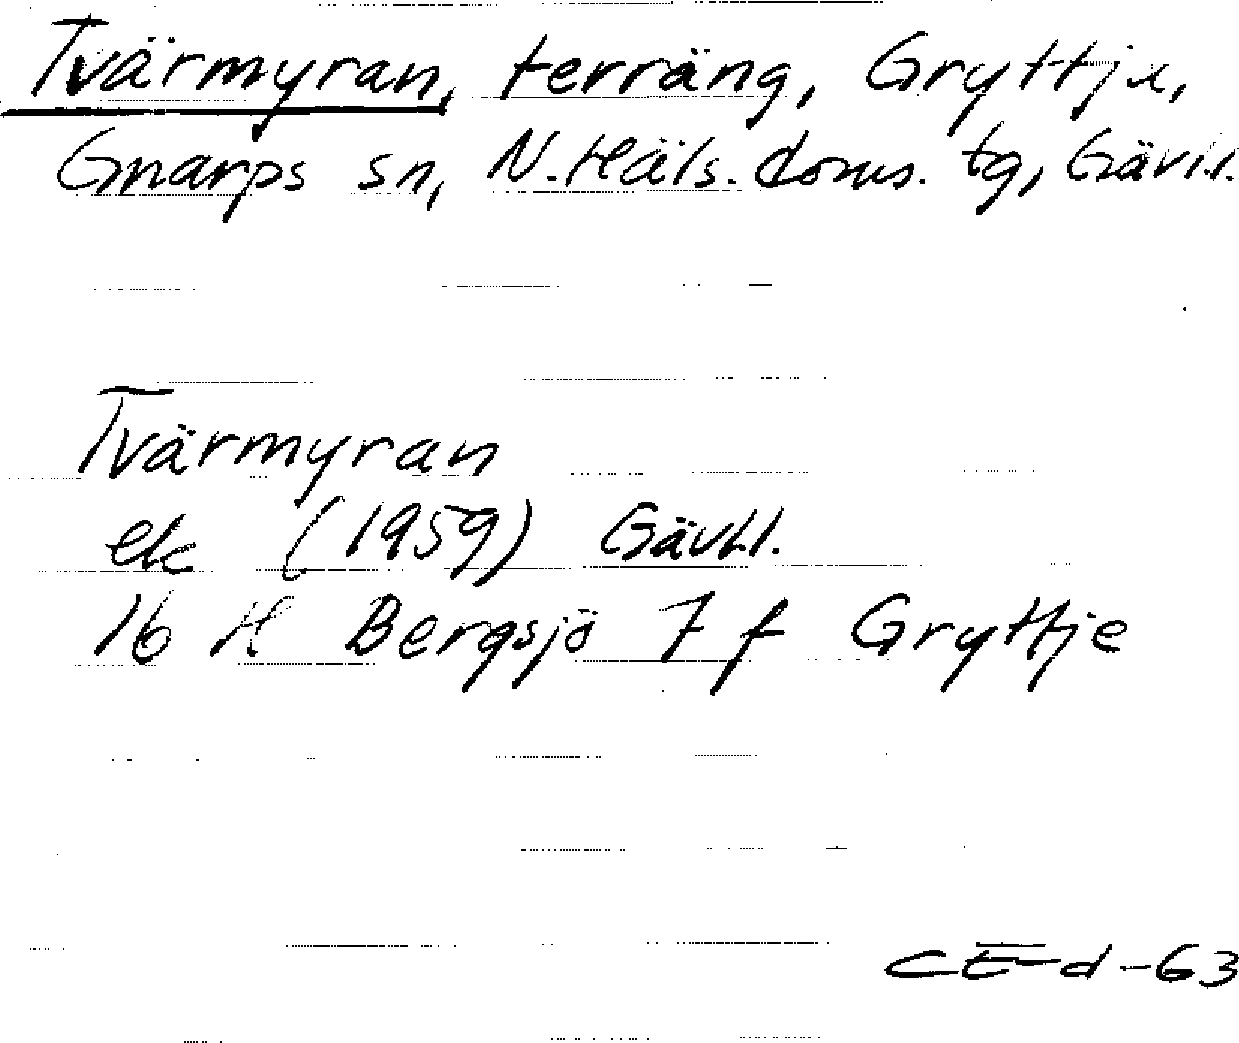 Tvärmyran, terräng, Gryttje,
Gnarps sn, N. Häls. doms. tg, Gävl.l.
Tvärmyran
ek (1959) Gävl.l.
16 H Bergsjö 7 f Gryttje
CEd-63